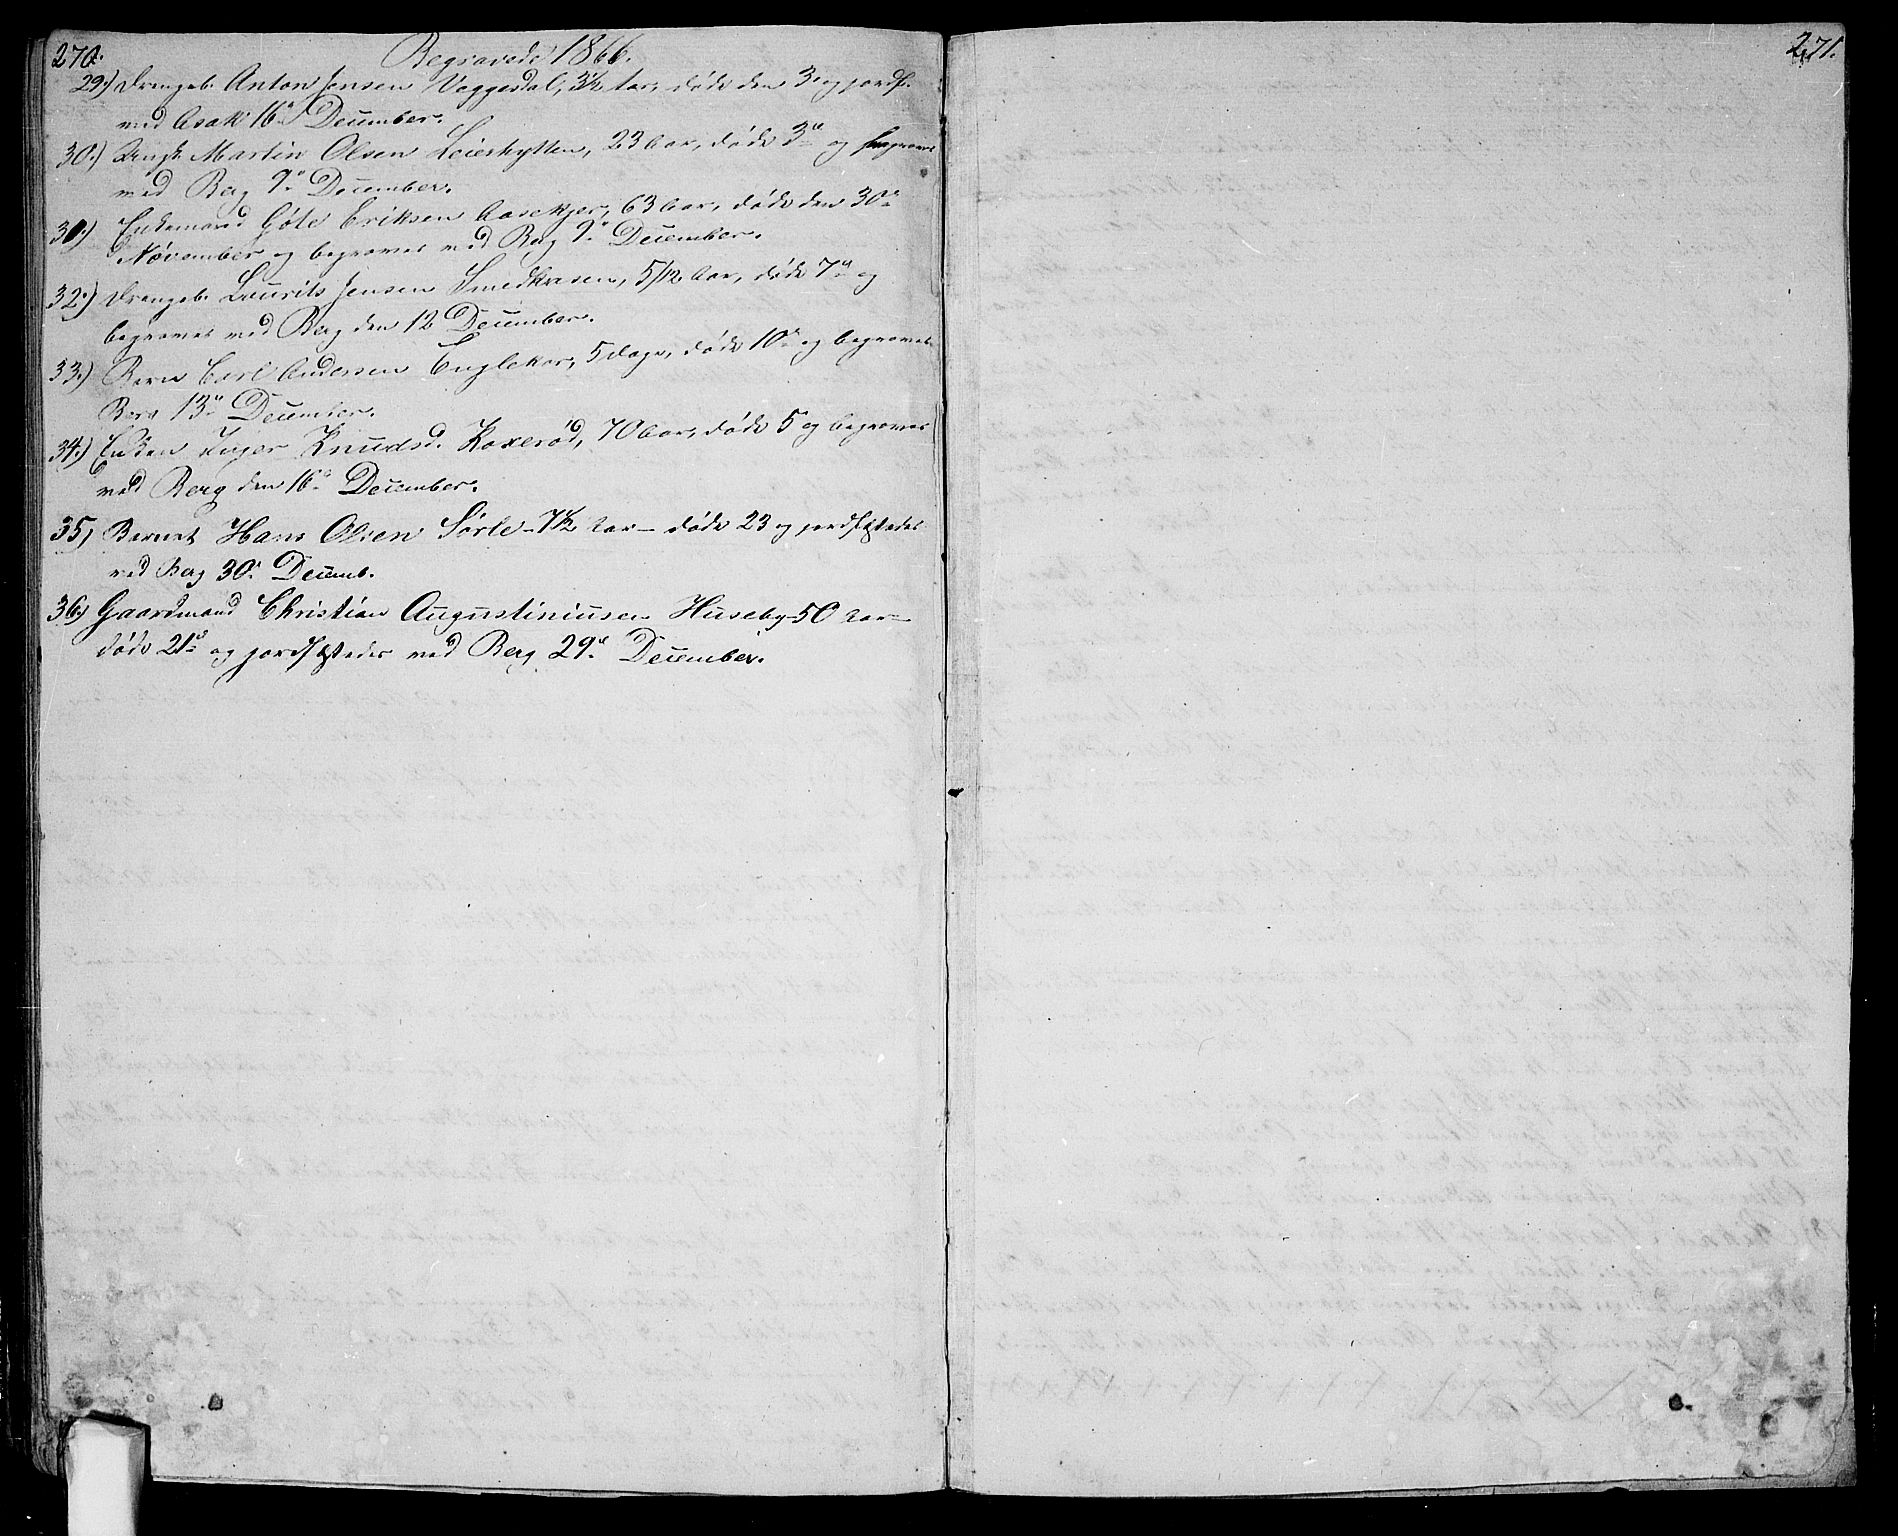 270.
Begravede 1866.
29.) Drengeb. Anton Jensen Veggesdal, 3½ Aar, døde den 3. og jordf.
ved Asak 16de December.
30.) Ungk. Martin Olsen Leiershytten, 23 Aar, døde 3de og begraves
ved Berg 9de December.
31.) Enkemand Göte Eriksen Aasekjær, 63 Aar, døde den 30de
November og begraves ved Berg 9de December.
32.) Drengeb. Lourits Jensen Smedkasen, 5/12 Aar, døde 7de og
begraves ved Berg den 12 December.
33.) Barn Carl Andersen Englekor, 5 Dage, døde 10de og begraves
Berg 13de December.
34.) Enken Inger Knudsd. Koxerød, 70 Aar, døde 5 og begraves
ved Berg den 16de December.
35) Barnet Hans Olsen Sørle - 7½ Aar - døde 23 og jordfæstedes
ved Berg 30. Decemb.
36.) Gaardmand Christian Augustiniusen Huseby - 50 Aar -
døde 21de og jordfæstedes ved Berg 29de December.
271.